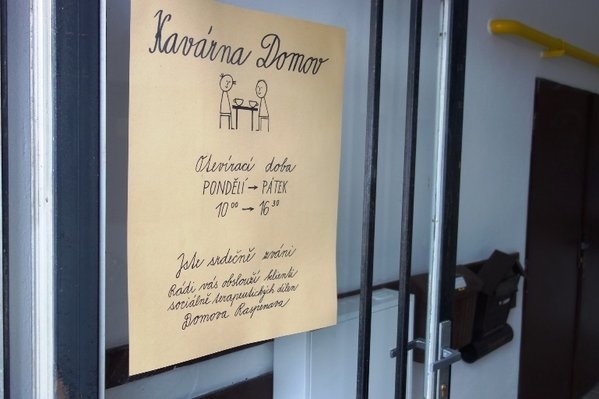 Kavárna Domov
Otevírací doba
PONDĚLÍ → PÁTEK
10⁰⁰ → 16³⁰
Jste srdečně zváni
Rádi vás obslouží klienti
sociálně terapeutických dílen
Domova Raspenava